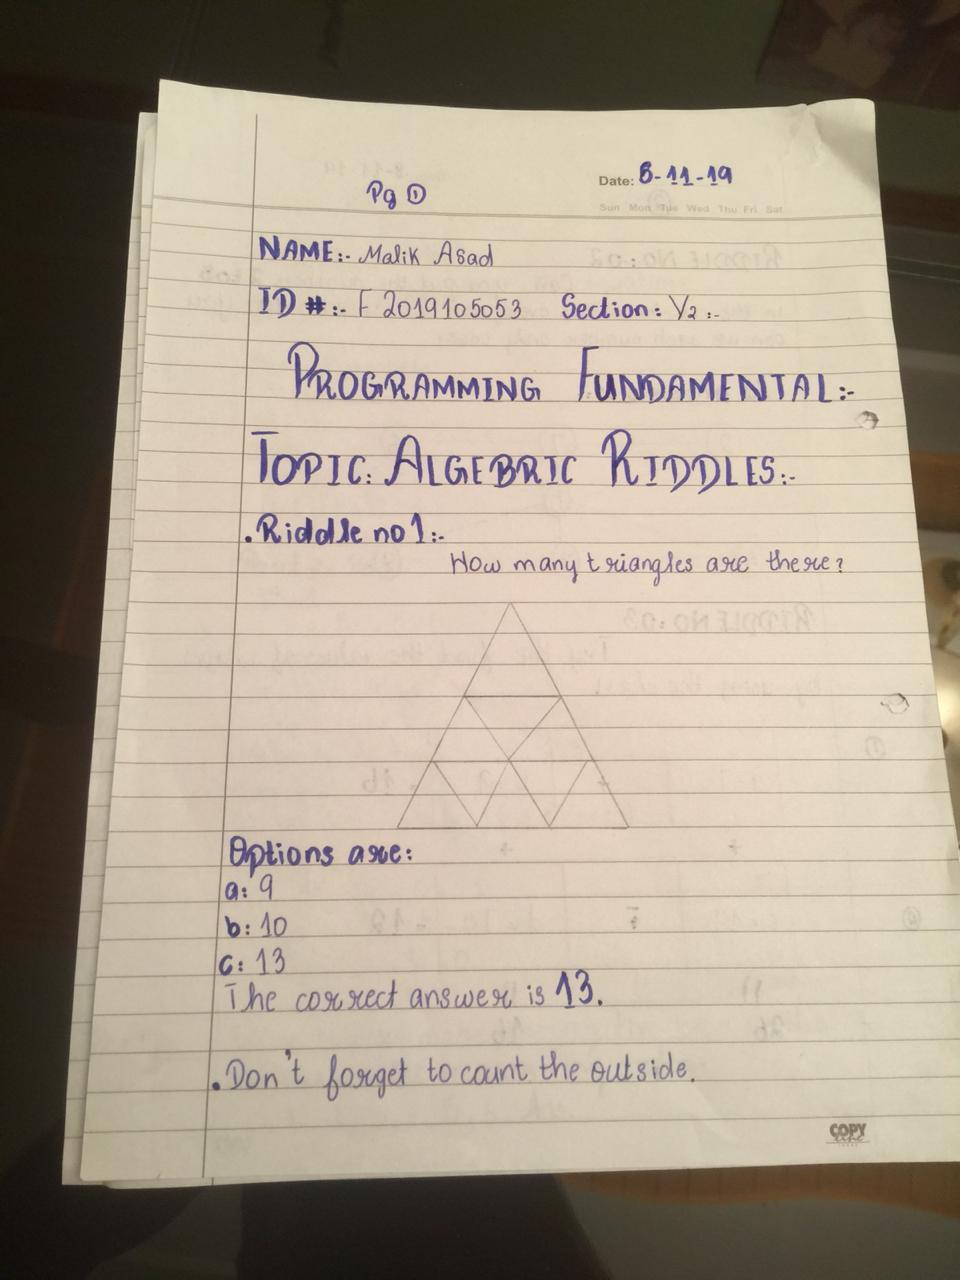 Pg ①
Date: 8-11-19
Sun Mon Tue Wed Thu Fri Sat
NAME:- Malik Asad
ID #:- F 2019105053 Section: Y2 :-
PROGRAMMING FUNDAMENTAL:-
TOPIC: ALGEBRIC RIDDLES:-
. Riddle no 1:-
How many triangles are there?
Options are:
a: 9
b: 10
c: 13
The correct answer is 13.
. Don't forget to count the outside.
COPY